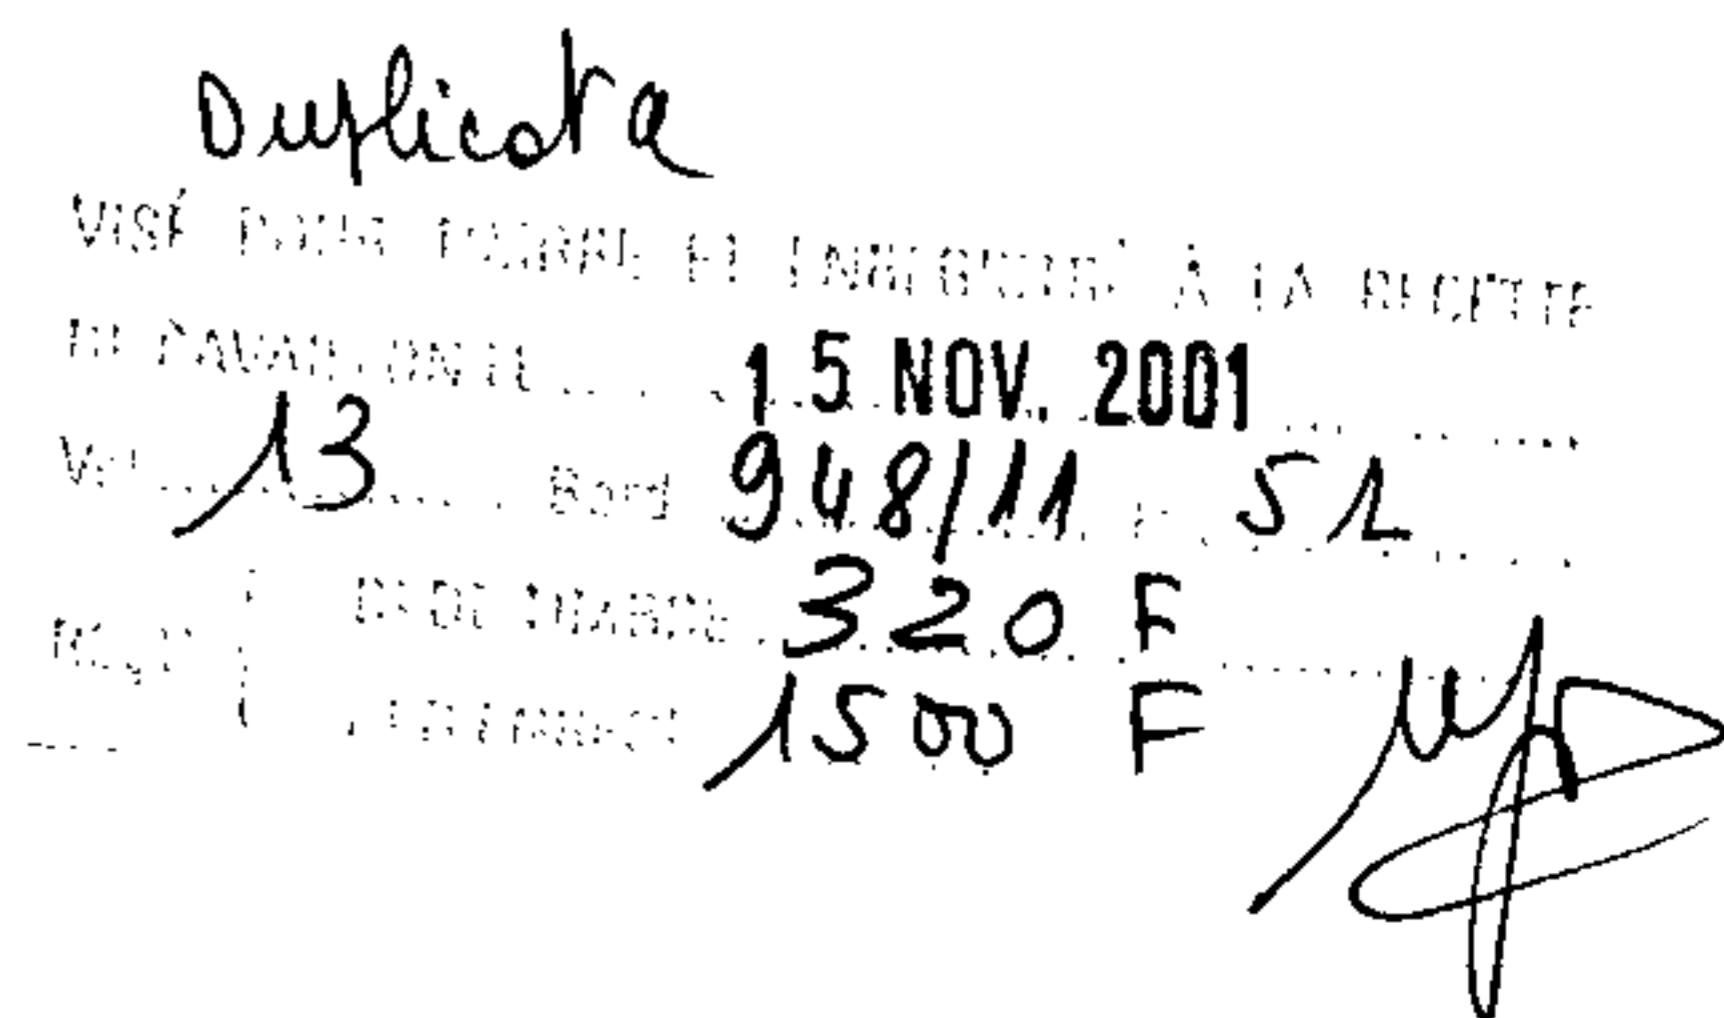 Duplicata
VISÉ POUR TIMBRE ET ENREGISTRÉ À LA RECETTE
DE CAVAILLON LE 15 NOV. 2001
Vol 13 Bord 948/11
Reçu DE DE TIMBRE 320 F
1500 F